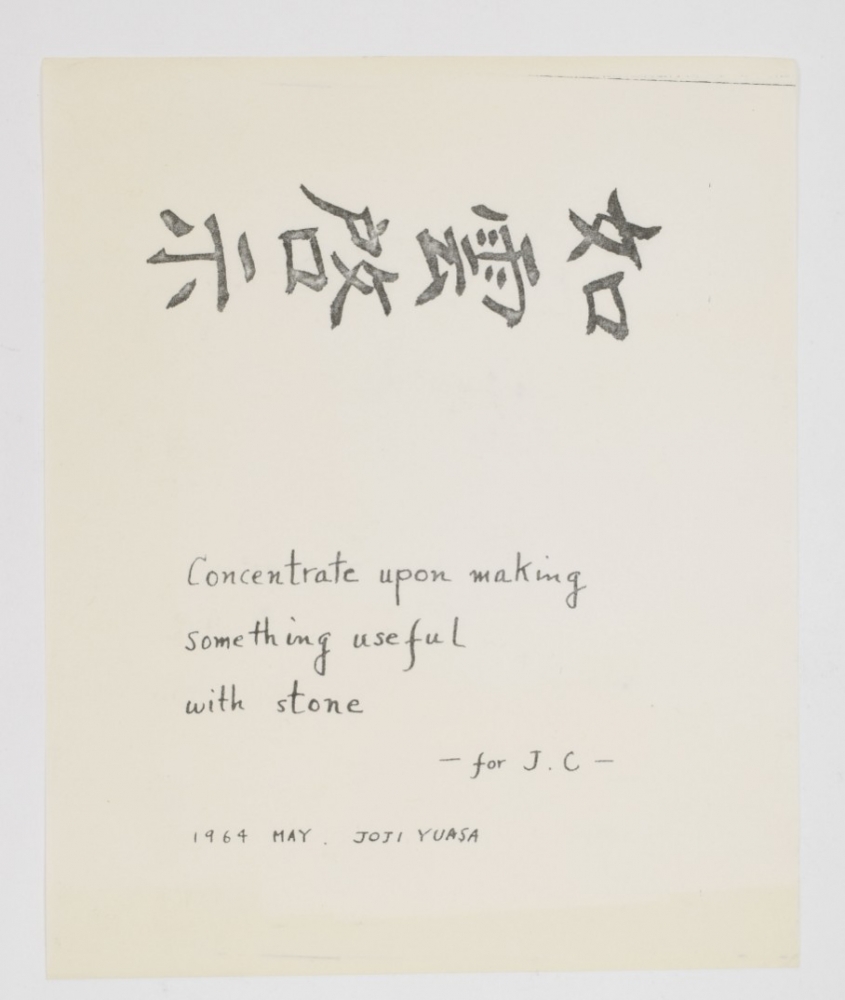 如雲啓示
Concentrate upon making
something useful
with stone
— for J.C —
1964 MAY. JOJI YUASA